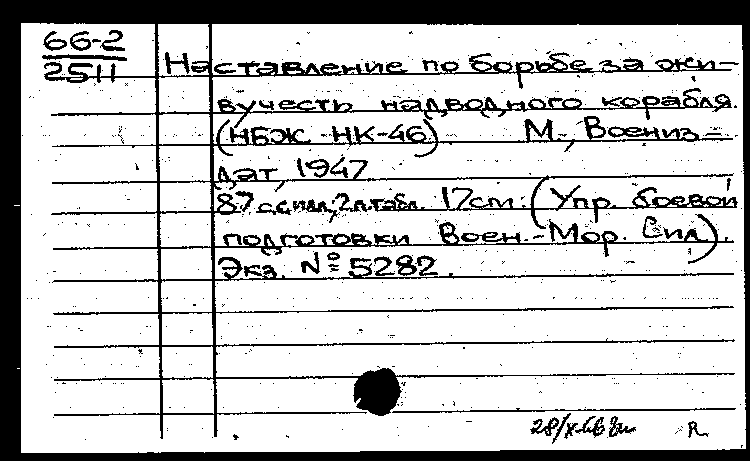 66-2
2511
Наставление по борьбе за жи-
вучесть надводного корабля.
(НБЖ-НК-46). М., Воениз-
дат, 1947
87 с. с илл.; 2 л. табл. 17 см. (Упр. боевой
подготовки Воен.-Мор. Сил).
Экз. № 5282.
28/X-66 R.